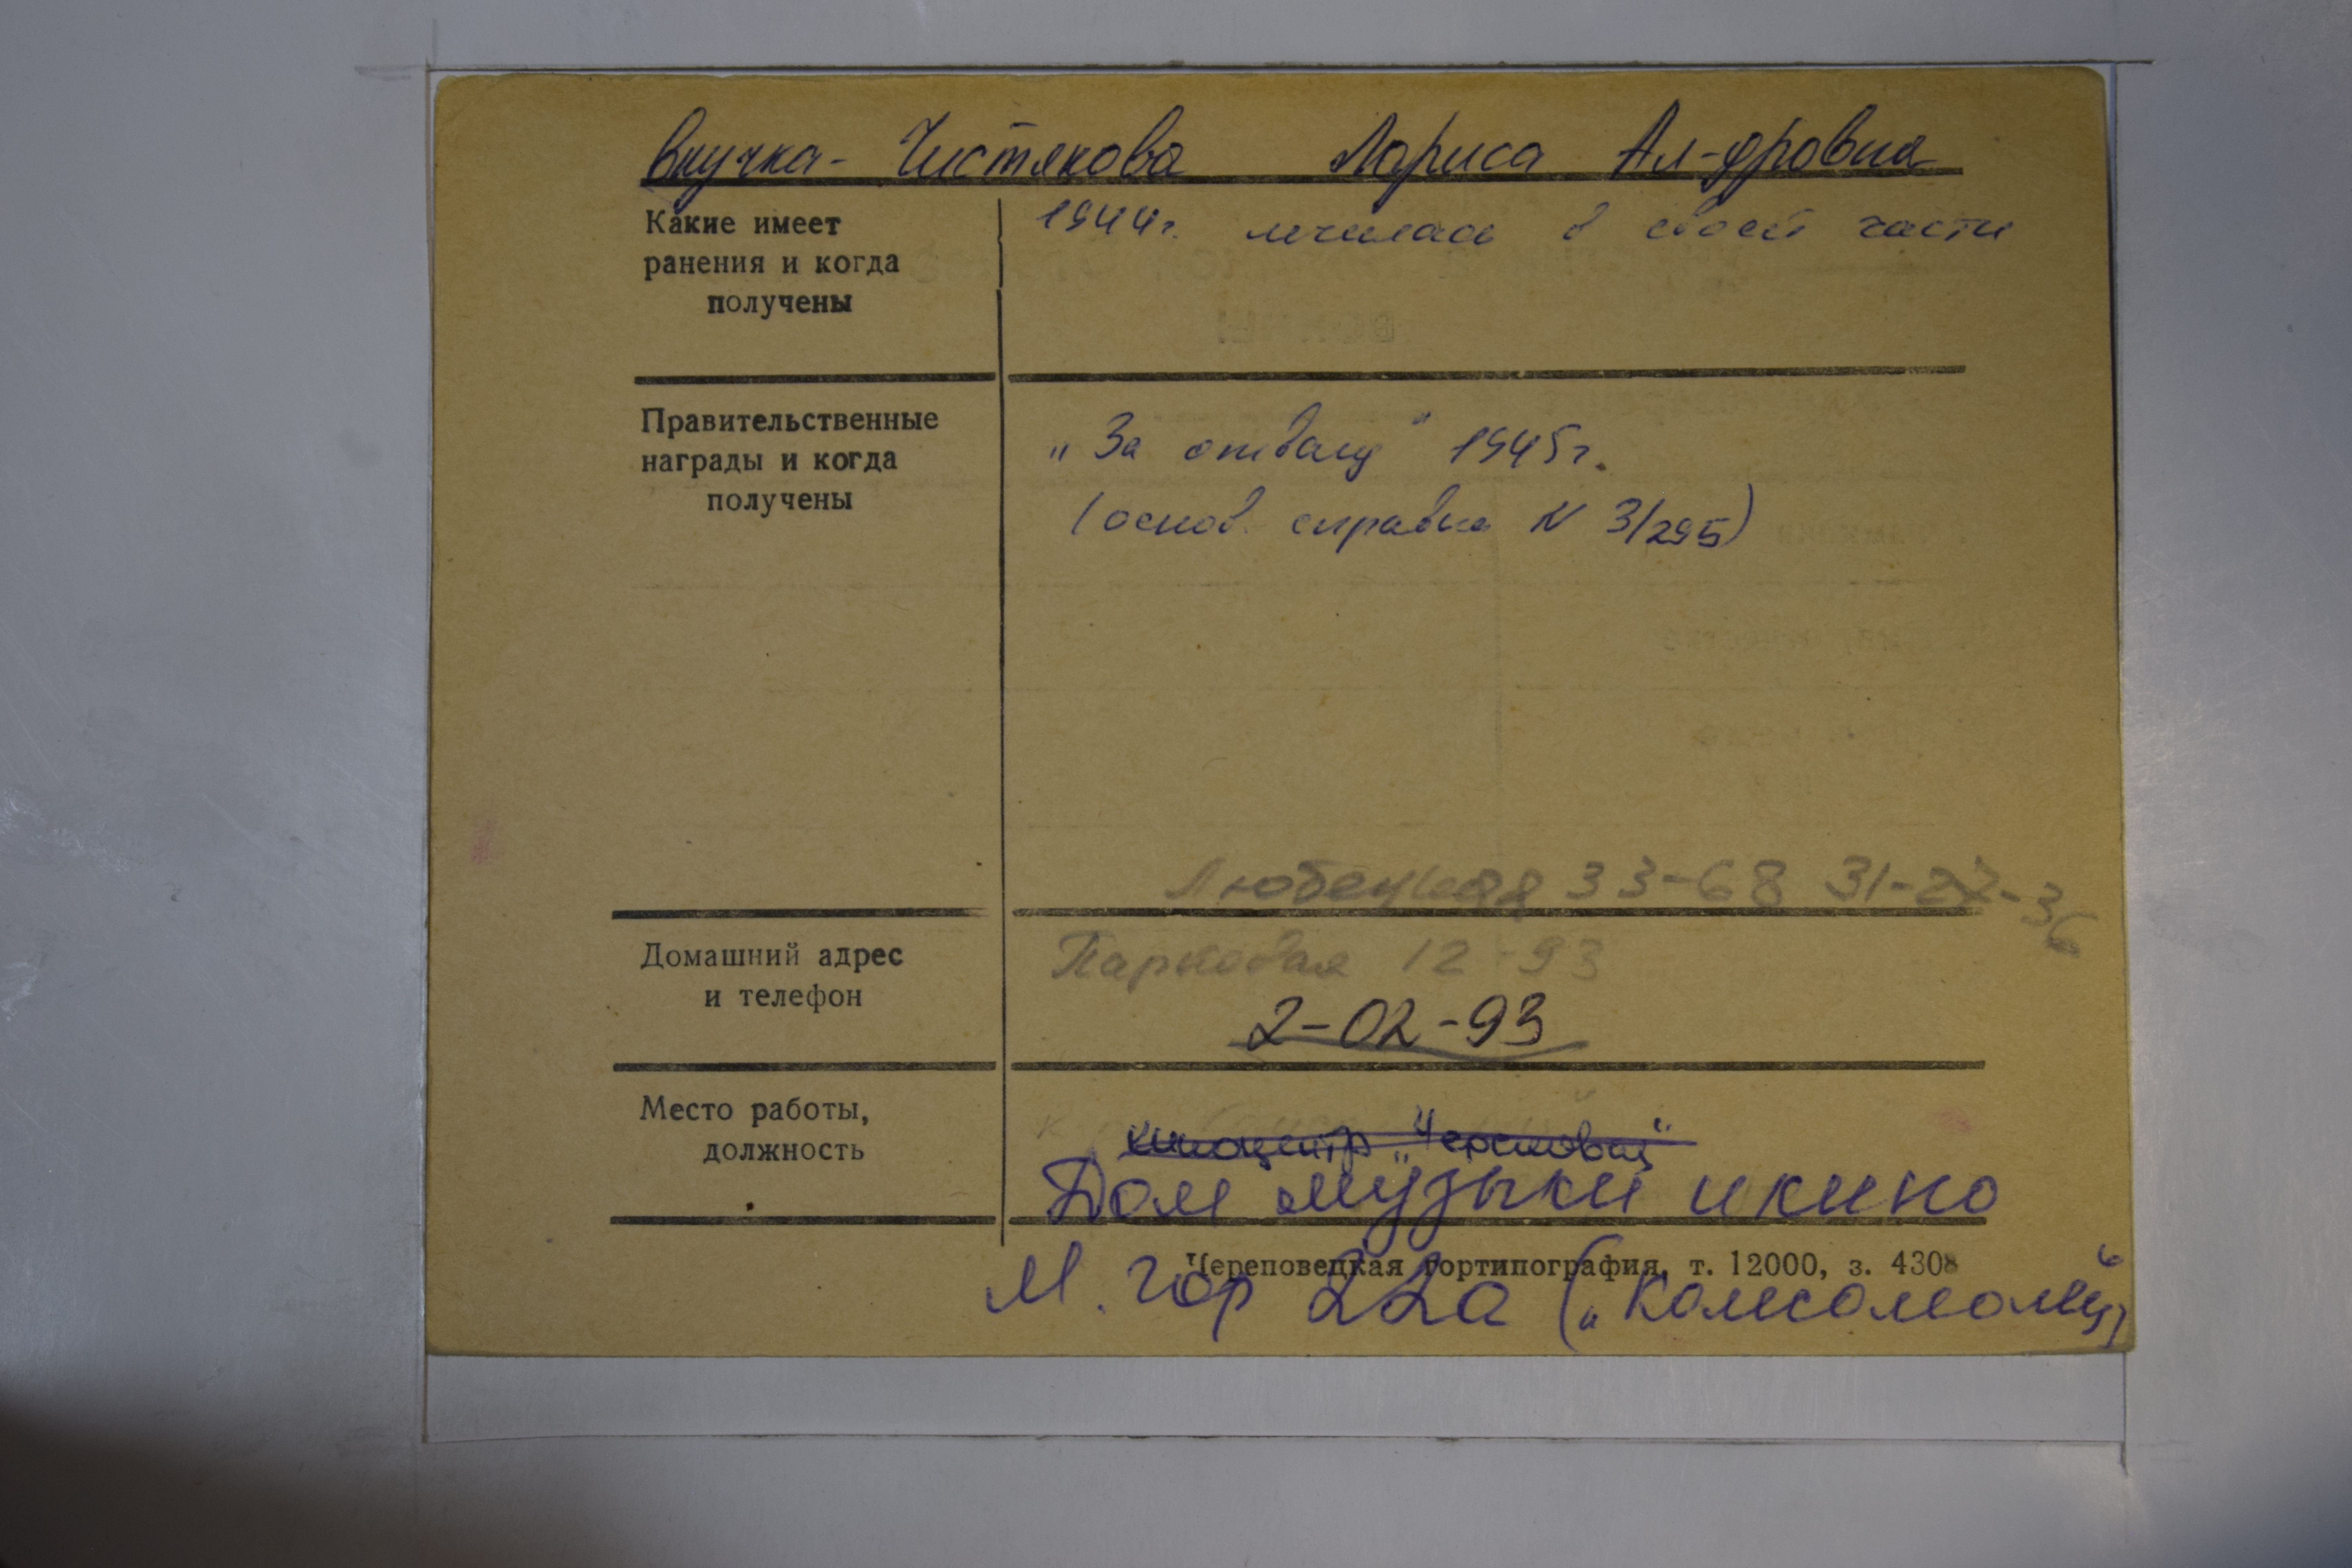 внучка - Чистякова Лариса Ал-дровна
Какие имеет ранения и когда получены
1944г. лечилась в своей части
Правительственные награды и когда получены
„За отвагу" 1945г.
(основ. справка N 3/295)
Любецкая 33-68 31-27-36
Домашний адрес и телефон
Парковая 12-93
2-02-93
Место работы, должность
киноцентр „Череповец"
Дом музыки и кино
Череповецкая гортипография, т. 12000, з. 4308
М. Гор 22а („Комсомолец")